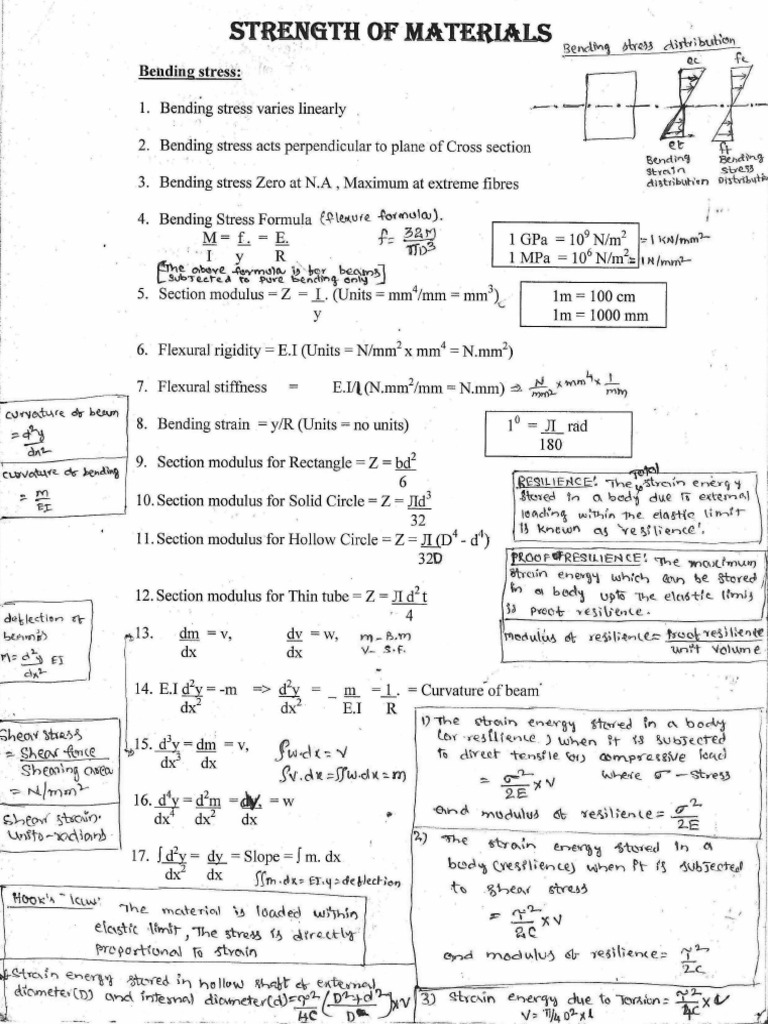 STRENGTH OF MATERIALS
Bending stress distribution
Bending stress:
ec fc
1. Bending stress varies linearly
et ft
Bending Strain distribution
Bending Stress Distributio
2. Bending stress acts perpendicular to plane of Cross section
3. Bending stress Zero at N.A , Maximum at extreme fibres
4. Bending Stress Formula (flexure formula).
M = f . = E.
I y R
f = 32M/πD³
[The above formula is for beams
subjected to pure bending only]
1 GPa = 10⁹ N/m² = 1 KN/mm²
1 MPa = 10⁶ N/m² = 1N/mm²
5. Section modulus = Z = I . (Units = mm⁴/mm = mm³)
y
1m = 100 cm
1m = 1000 mm
6. Flexural rigidity = E.I (Units = N/mm² x mm⁴ = N.mm²)
7. Flexural stiffness = E.I/l (N.mm²/mm = N.mm) ⇒ N/mm² x mm⁴ x 1/mm
curvature of beam
= d²y/dx²
curvature of bending
= m/EI
8. Bending strain = y/R (Units = no units)
1⁰ = JI rad
180
9. Section modulus for Rectangle = Z = bd²
6
10. Section modulus for Solid Circle = Z = JId³
32
11. Section modulus for Hollow Circle = Z = JI (D⁴ - d⁴)
32D
RESILIENCE: The Total strain energy
stored in a body due to external
loading within the elastic limit
is known as 'resilience'.
PROOF OF RESILIENCE: The maximum
strain energy which can be stored
in a body upto the elastic limit
is proof resilience.
modulus of resilience = Proof resilience/unit volume
12. Section modulus for Thin tube = Z = JI d² t
4
deflection of
beams
M = d²y/dx² EI
13. dm = v, dv = w,
dx dx
m - B.m
V - S.F.
14. E.I d²y = -m => d²y = _ m = 1 . = Curvature of beam
dx² dx² E.I R
Shear stress
= Shear force/Shearing area
= N/mm²
Shear strain.
Units-radians
15. d³y = dm = v,
dx³ dx
∫w.dx = V
∫V.dx = ∫∫w.dx = m
16. d⁴y = d²m = dv = w
dx⁴ dx² dx
17. ∫ d²y = dy = Slope = ∫ m. dx
dx² dx
∫∫m.dx = EI.y = deflection
1) The strain energy stored in a body
(or resilience) when it is subjected
to direct tensile (or) compressive load
= σ²/2E x V where σ - Stress
and modulus of resilience = σ²/2E
2) The strain energy stored in a
body (resilience) when it is subjected
to shear stress
= τ²/2C x V
and modulus of resilience = τ²/2C
Hook's law: The material is loaded within
elastic limit, The stress is directly
proportional to strain
Strain energy stored in hollow shaft of external
diameter(D) and internal diameter(d) = (D²+d²/D²) x V
3) Strain energy due to Torsion = τ²/4C x V
V = π/4 D² x l